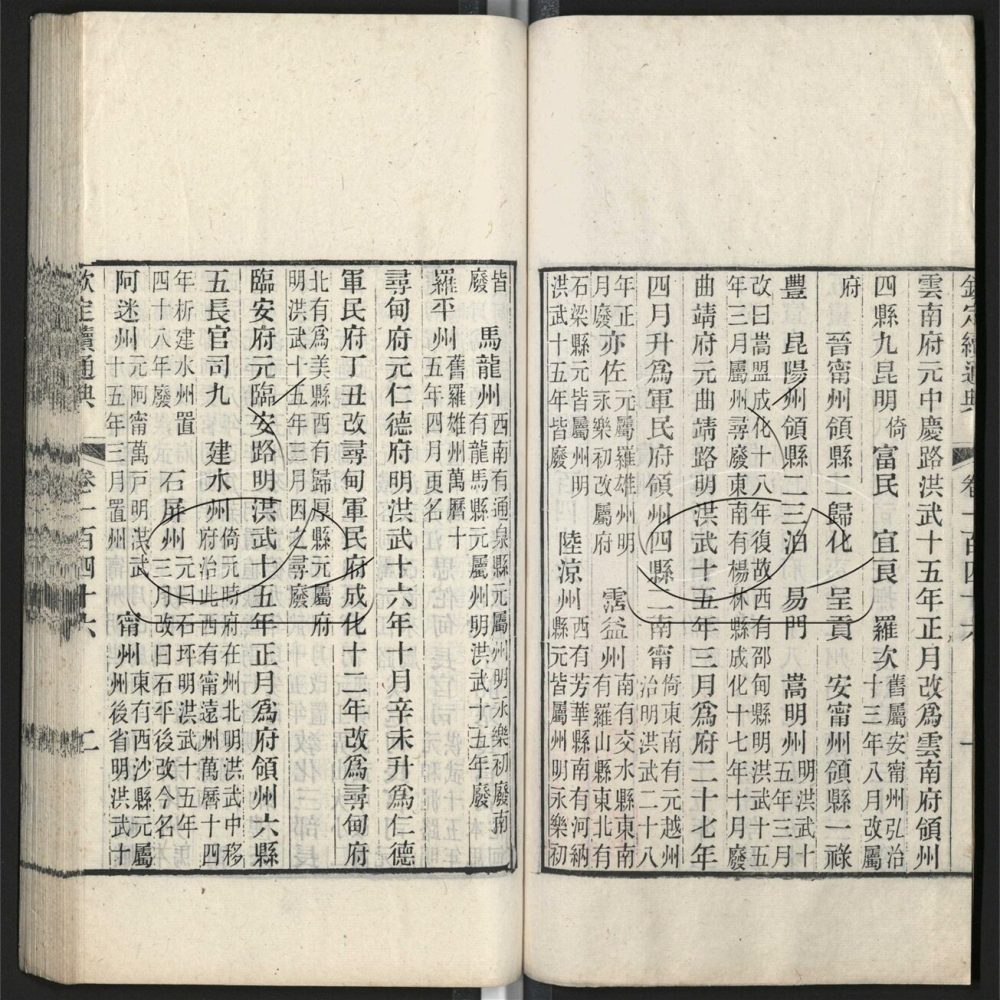 欽定續通典 卷一百四十六 一
雲南府元中慶路洪武十五年正月改爲雲南府領州
四縣九昆明倚 富民 宜良 羅次舊屬安甯州弘治十三年八月改屬
府 晉甯州領縣二歸化 呈貢 安甯州領縣一祿
豐 昆陽州領縣二三泊 易門 嵩明州明洪武十五年三月
改曰嵩盟成化十八年復故西有邵甸縣明洪武十五
年三月屬州尋廢東南有楊林縣成化十七年十月廢
曲靖府元曲靖路明洪武十五年三月爲府二十七年
四月升爲軍民府領州四縣二南甯倚東南有元越州治明洪武二十八
年正月廢 亦佐元屬羅雄州明永樂初改屬府 霑益州南有交水縣東南有羅山縣東北有
石梁縣元皆屬州明洪武十五年皆廢 陸涼州西有芳華縣南有河納縣元皆屬州明永樂初
皆廢 馬龍州西南有通泉縣元屬州明永樂初廢南有龍馬縣元屬州明洪武十五年廢
羅平州舊羅雄州萬曆十五年四月更名
尋甸府元仁德府明洪武十六年十月辛未升爲仁德
軍民府丁丑改尋甸軍民府成化十二年改爲尋甸府
北有爲美縣西有歸厚縣元屬府明洪武十五年三月因之尋廢
臨安府元臨安路明洪武十五年正月爲府領州六縣
五長官司九 建水州倚元時府在州北明洪武中移府治此西有甯遠州萬曆十四
年析建水州置四十八年廢 石屏州元曰石坪明洪武十五年三月改曰石平後改今名
阿迷州元阿甯萬戸明洪武十五年三月置州 甯州東有西沙縣元屬州後省明洪武十
欽定續通典 卷一百四十六 二